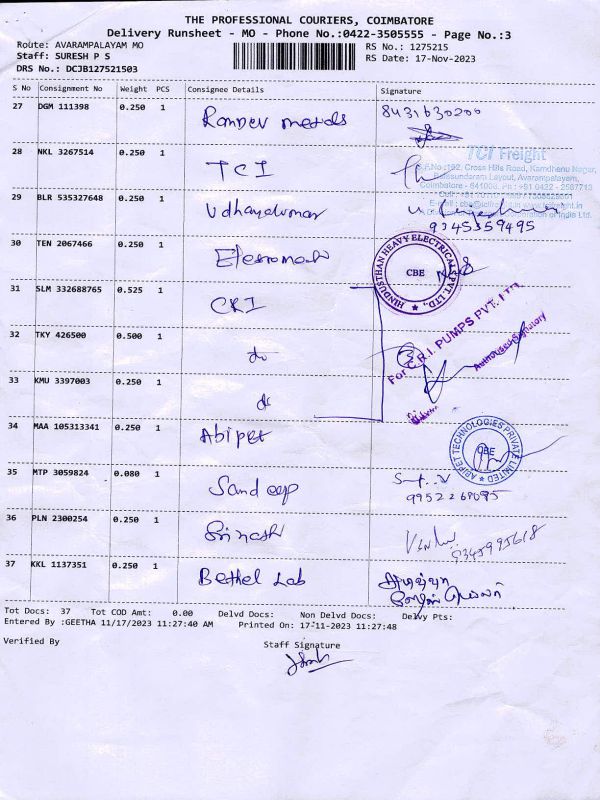 THE PROFESSIONAL COURIERS, COIMBATORE
Delivery Runsheet - MO - Phone No.:0422-3505555 - Page No.:3
Route: AVARAMPALAYAM MO
RS No.: 1275215
Staff: SURESH P S
RS Date: 17-Nov-2023
DRS No.: DCJB127521503
S No Consignment No Weight PCS Consignee Details Signature
27 DGM 111398 0.250 1 8431630200
28 NKL 3267514 0.250 1 TCI
TCI Freight
S.F.No:192, Cross Hills Road, Kamdhenu Nagar,
Layout, Avarampalayam,
29 BLR 535327648 0.250 1 Udhayakumar
9345359495
30 TEN 2067466 0.250 1
HINDUSTHAN HEAVY ELECTRICAL PVT. LTD.
CBE
31 SLM 332688765 0.525 1 CRI
32 TKY 426500 0.500 1 do
For C.R.I. PUMPS PVT. LTD
Authorised Signatory
33 KMU 3397003 0.250 1 do
34 MAA 105313341 0.250 1 Abipet
ABIPET TECHNOLOGIES PRIVATE LIMITED
CBE
35 MTP 3059824 0.080 1 Sandeep
36 PLN 2300254 0.250 1
37 KKL 1137351 0.250 1 Bethel Lab
Tot Docs: 37 Tot COD Amt: 0.00 Delvd Docs: Non Delvd Docs: Delvy Pts:
Entered By :GEETHA 11/17/2023 11:27:40 AM Printed On: 17-11-2023 11:27:48
Verified By
Staff Signature